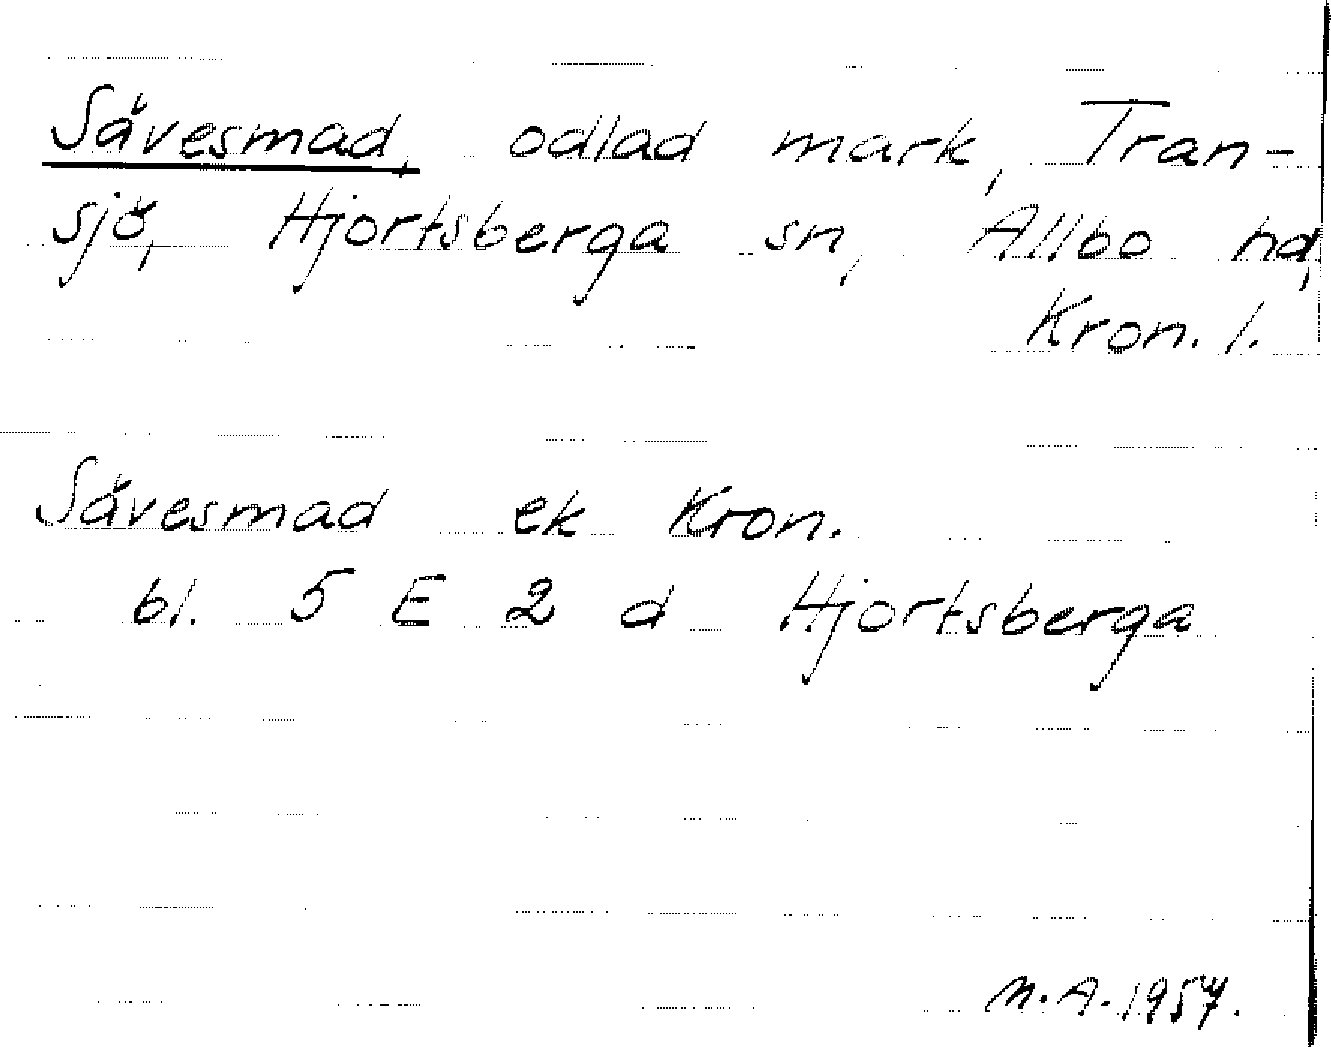 Sävesmad, odlad mark, Tran-
sjö, Hjortsberga sn, Allbo hd,
Kron. l.
Sävesmad ek Kron.
bl. 5 E 2 d Hjortsberga
N.A. 1957.